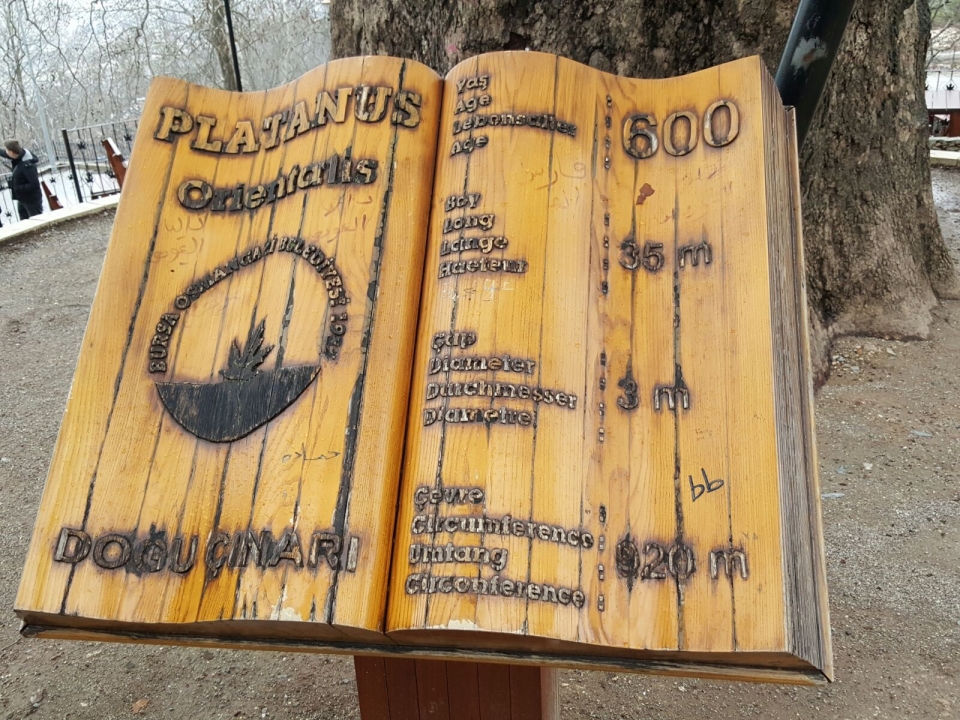 PLATANUS
Orientalis
BURSA OSMANGAZİ BELEDİYESİ
DOĞU ÇINARI
Yaş
Age
Age
: 600
Boy
Long
Länge
: 35 m
Çap
Diameter
Durchmesser
Diametre
: 3 m
Çevre
Circumference
Umfang
Circonference
: 920 m
bb